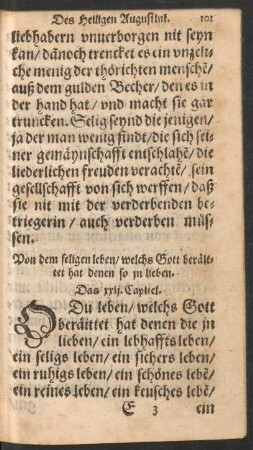 Des Heiligen Augustini. 101
liebhabern vnuerborgen nit seyn
kan/ dãnoch trencket es ein vnzeli-
che menig der thörichten menschẽ/
auß dem gulden Becher/ den es in
der hand hat/ vnd macht sie gar
truncken. Selig seynd die jenigen/
ja der man wenig findt/ die sich sei-
ner gemäynschafft entschlahẽ/ die
liederlichen freuden verachtẽ/ sein
gesellschafft von sich werffen/ daß
sie nit mit der verderbenden be-
triegerin/ auch verderben müs-
sen.
Von dem seligen leben/ welchs Gott beräit-
tet hat denen so jn lieben.
Das xxij. Capitel.
O Du leben/ welchs Gott
beräittet hat denen die jn
lieben/ ein lebhaffts leben/
ein seligs leben/ ein sichers leben/
ein ruhigs leben/ ein schönes lebẽ/
ein reines leben/ ein keusches lebẽ/
E 3 ein